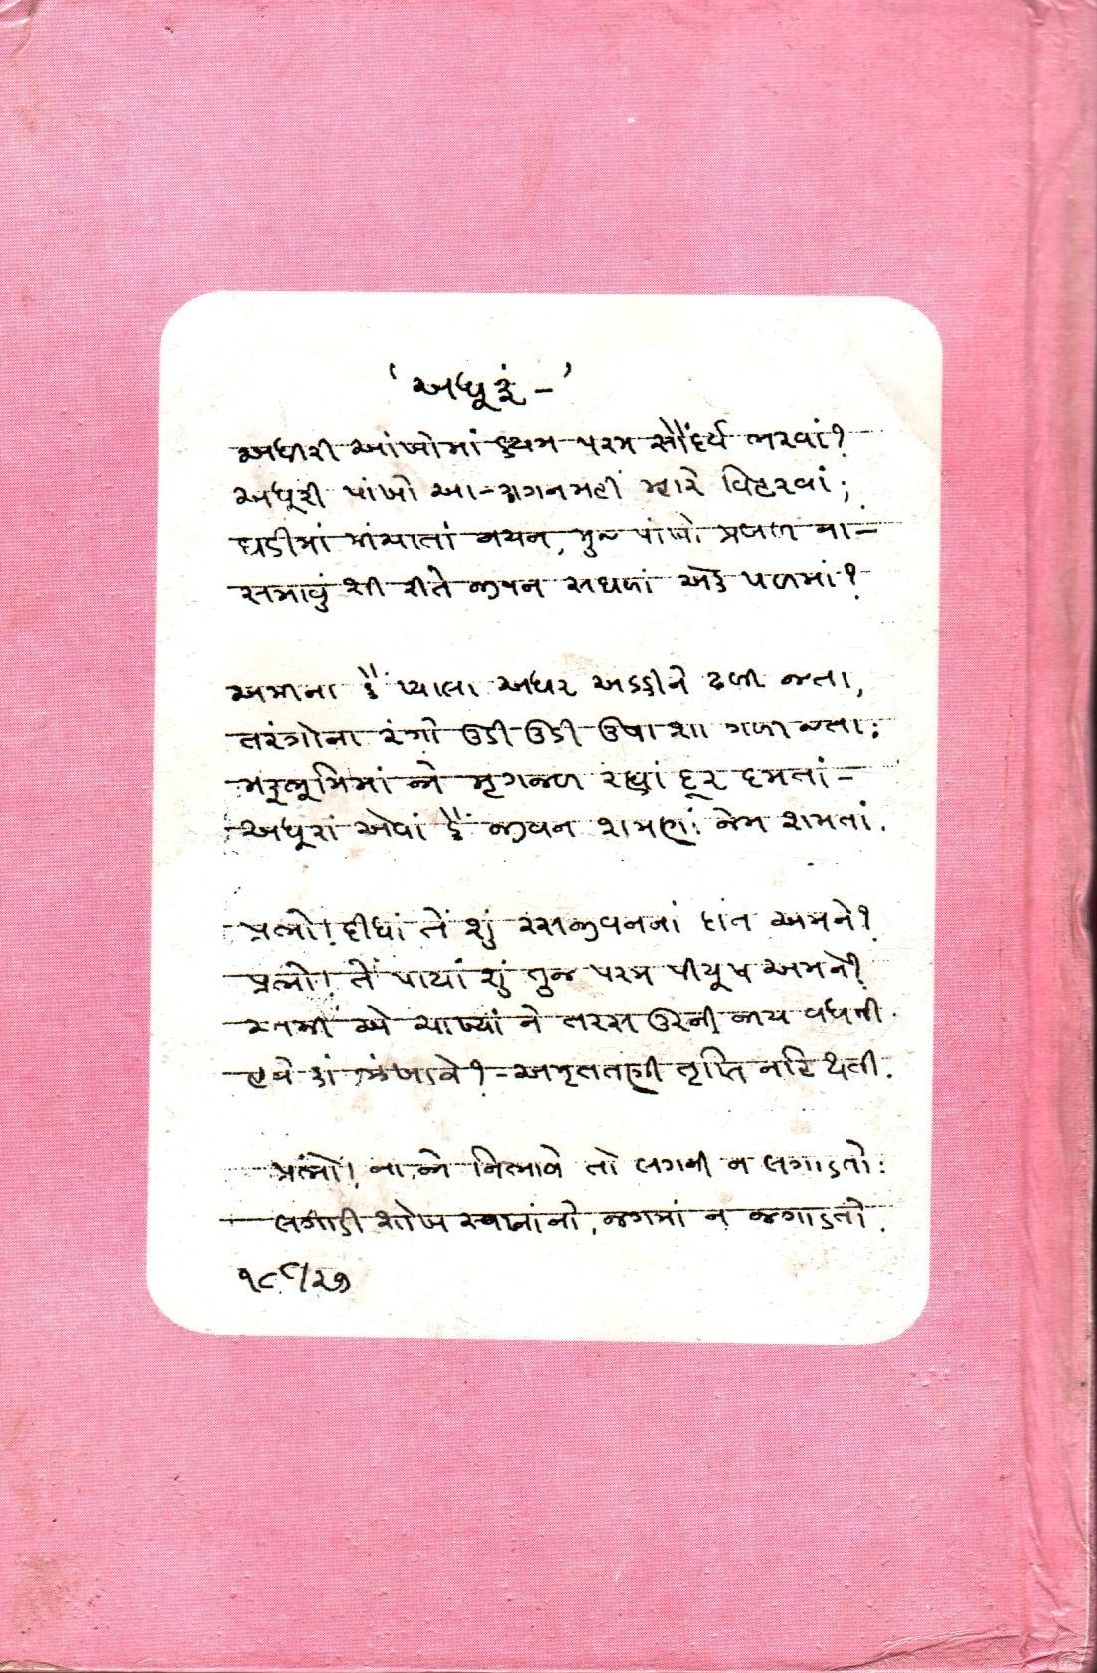 'અધૂરૂં –'
અધીરી આંખોમાં ક્યમ પરમ સૌંદર્ય ભરવાં?
અધૂરી પાંખો આ – ગગનમહીં મ્હારે વિહરવાં;
ઘડીમાં મીંચાતાં નયન, મુજ પાંખો પ્રબળ ના –
સમાવું શી રીતે જીવન સઘળાં એક પળમાં?
અમીના કૈં પ્યાલા અધર અડકીને ઢળી જતા,
તરંગોના રંગો ઉડી ઉડી ઉષા શા ગળી જતા;
મરૂભૂમિમાં જે મૃગજળ રહ્યાં દૂર દમતાં –
અધૂરાં એવાં કૈં જીવન શમણાં જેમ શમતાં.
પ્રભો! દીધાં તેં શું રસજીવનનાં દાન અમને?
પ્રભો! તેં પાયાં શું તુજ પરમ પીયૂષ અમને?
અમી એ ચાખ્યાં ને તરસ ઉરની જાય વધતી
હવે કાં ઝંખાવે? – અમૃતતણી તૃપ્તિ નહિ થતી.
પ્રભો! ના જે નિભાવે તો લગની ન લગાડતો:
લગાડી શોખ સ્વપ્નાંનો, જગમાં ન જગાડતો.